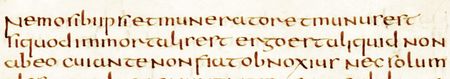 Nemo sibi ipsi et munerator et munus est
siquod immortalis est ergo et aliquid non
ab eo cui ante non fiat obnoxius nec solum